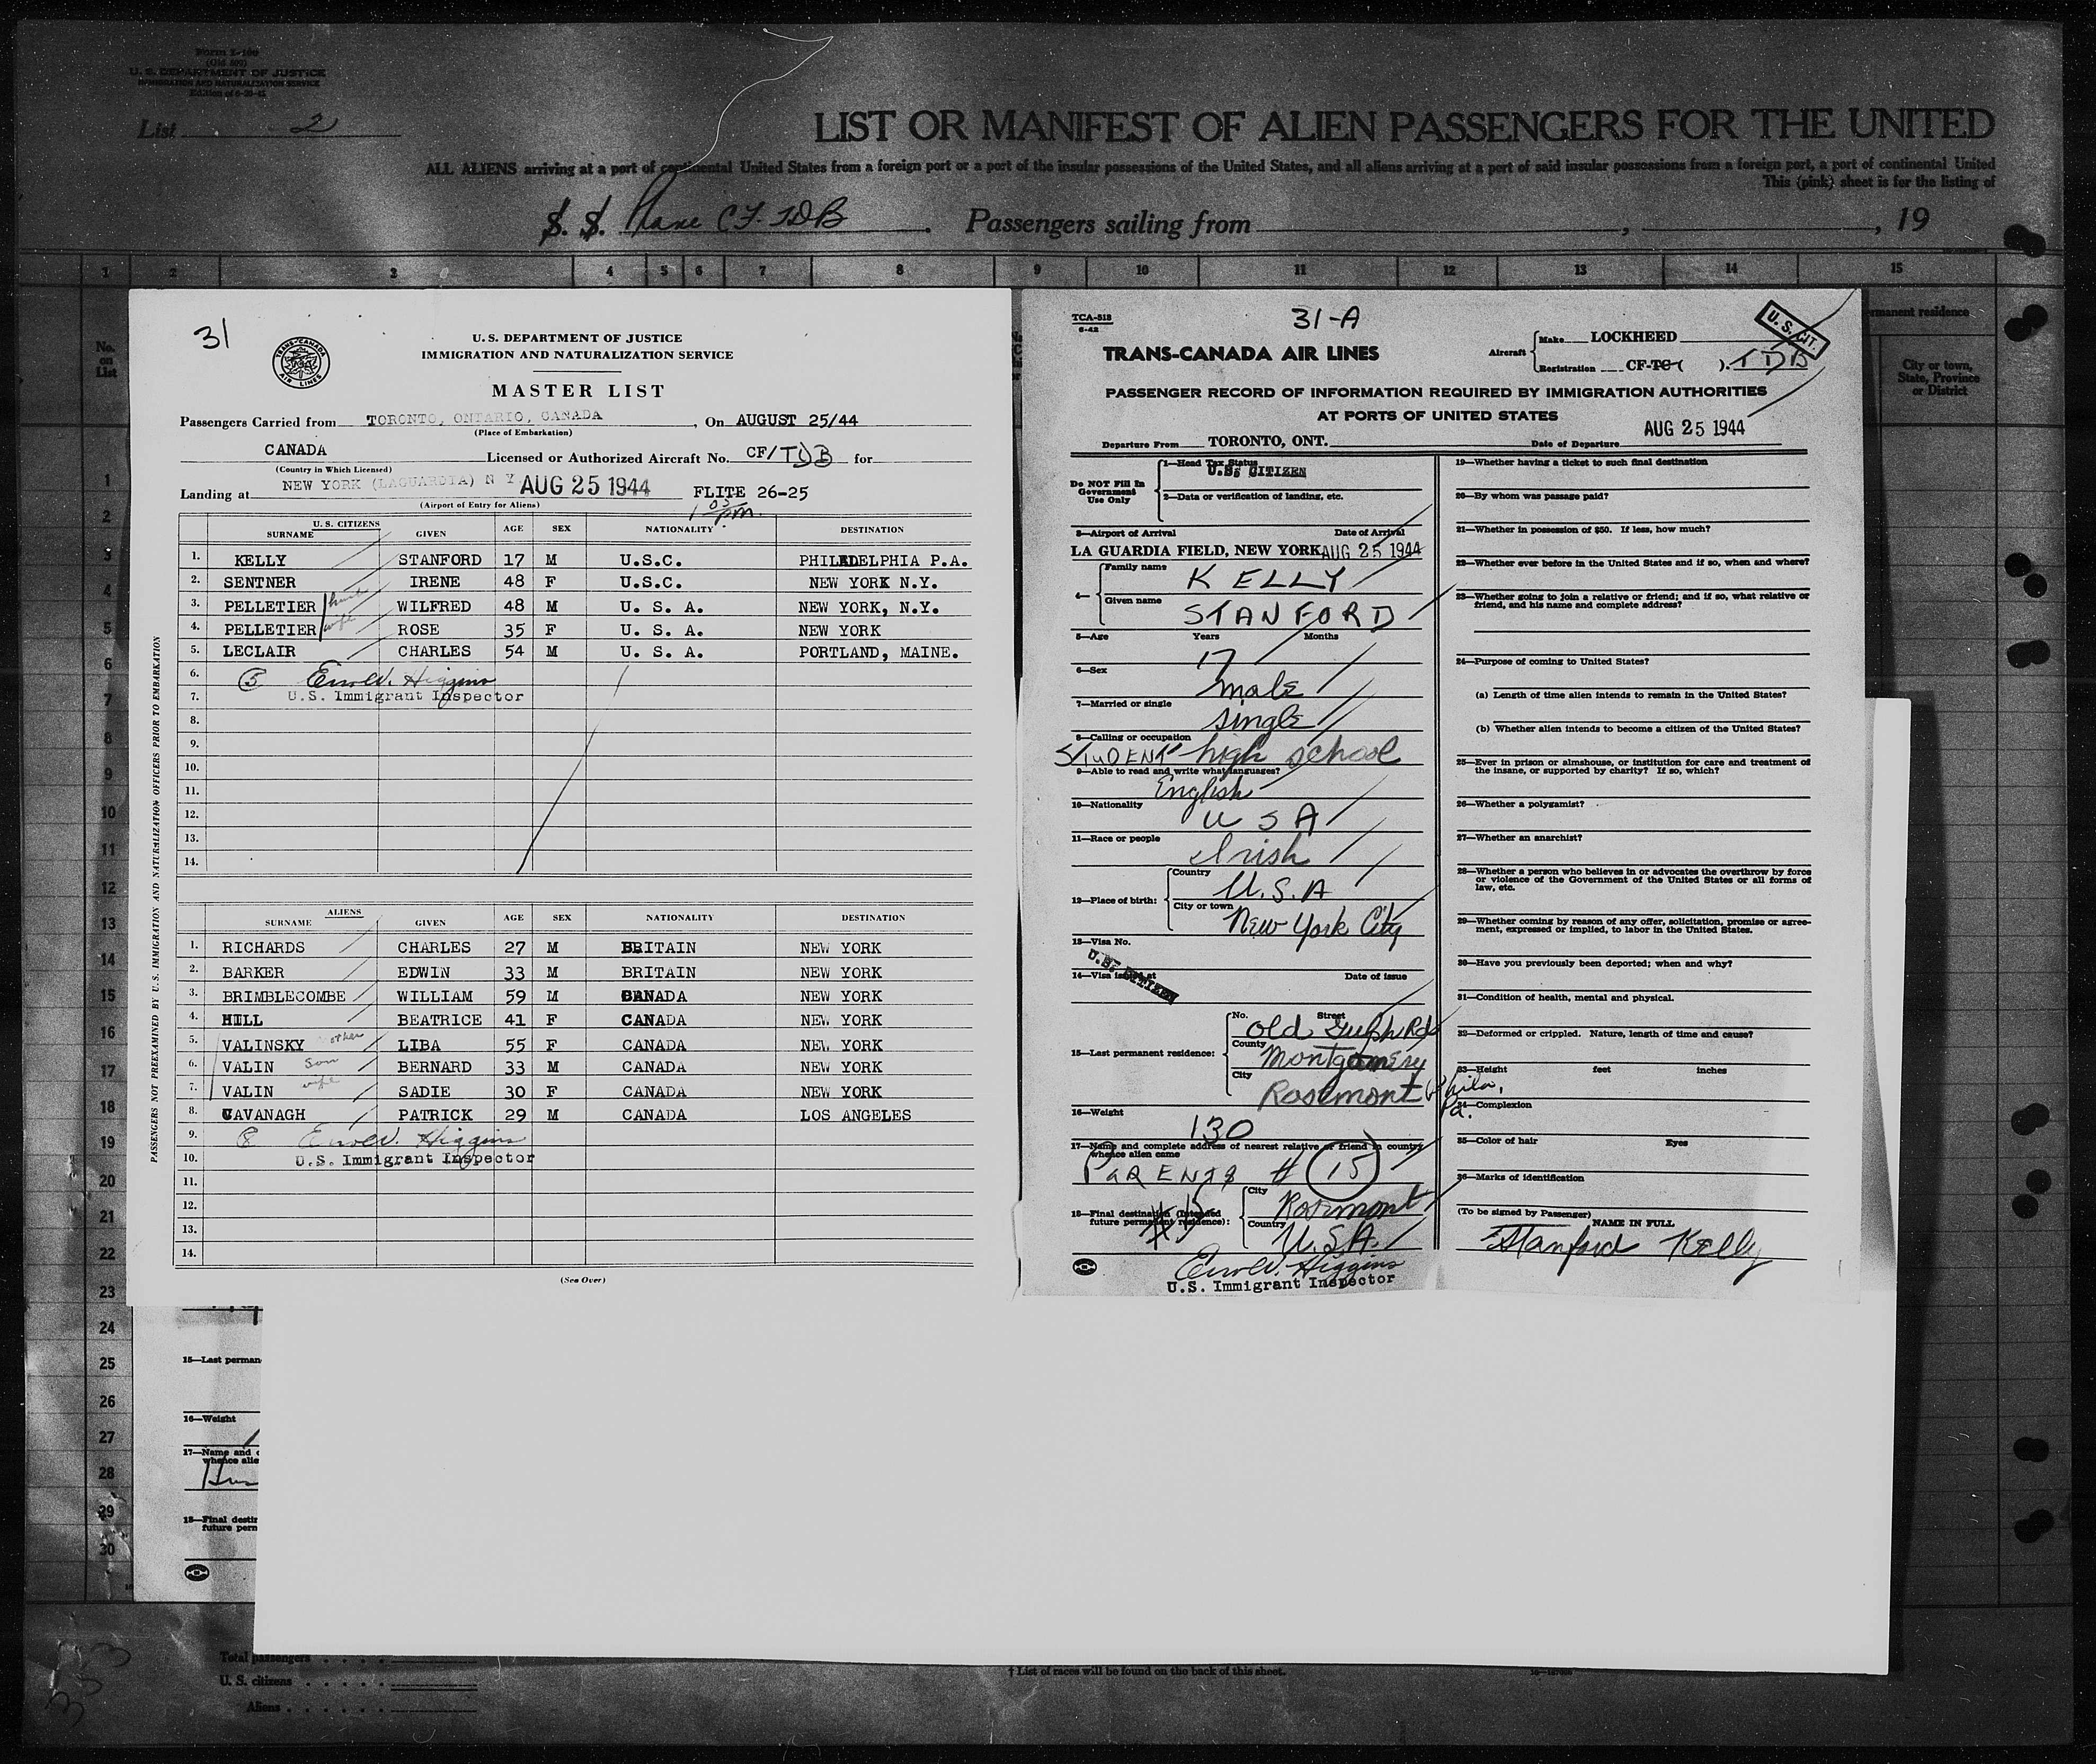 Form I-466
(Old 500)
U. S. DEPARTMENT OF JUSTICE
IMMIGRATION AND NATURALIZATION SERVICE
List 2
LIST OR MANIFEST OF ALIEN PASSENGERS FOR THE UNITED
ALL ALIENS arriving at a port of continental United States from a foreign port or a port of the insular possessions of the United States, and all aliens arriving at a port of said insular possessions from a foreign port, a port of continental United
This (pink) sheet is for the listing of
S. S. Plane CF. TDB. Passengers sailing from , , 19
1 2 3 4 5 6 7 8 9 10 11 12 13 14 15
No. on List
permanent residence
City or town, State, Province or District
31
TRANS-CANADA AIR LINES
U. S. DEPARTMENT OF JUSTICE
IMMIGRATION AND NATURALIZATION SERVICE
MASTER LIST
Passengers Carried from TORONTO, ONTARIO, CANADA, On AUGUST 25/44
(Place of Embarkation)
CANADA Licensed or Authorized Aircraft No. CF/TDB for
(Country in Which Licensed)
Landing at NEW YORK (LAGUARDIA) N Y AUG 25 1944 FLITE 26-25
(Airport of Entry for Aliens)
1 05 P.M.
U. S. CITIZENS
SURNAME GIVEN AGE SEX NATIONALITY DESTINATION
1. KELLY STANFORD 17 M U.S.C. PHILADELPHIA P.A.
2. SENTNER IRENE 48 F U.S.C. NEW YORK N.Y.
3. PELLETIER WILFRED 48 M U. S. A. NEW YORK, N.Y.
4. PELLETIER wife ROSE 35 F U. S. A. NEW YORK
5. LECLAIR CHARLES 54 M U. S. A. PORTLAND, MAINE.
6. 5 Higgins
7. U.S. Immigrant Inspector
8.
9.
10.
11.
12.
13.
14.
ALIENS
SURNAME GIVEN AGE SEX NATIONALITY DESTINATION
1. RICHARDS CHARLES 27 M BRITAIN NEW YORK
2. BARKER EDWIN 33 M BRITAIN NEW YORK
3. BRIMBLECOMBE WILLIAM 59 M CANADA NEW YORK
4. HILL BEATRICE 41 F CANADA NEW YORK
5. VALINSKY other LIBA 55 F CANADA NEW YORK
6. VALIN son BERNARD 33 M CANADA NEW YORK
7. VALIN wife SADIE 30 F CANADA NEW YORK
8. CAVANAGH PATRICK 29 M CANADA LOS ANGELES
9. 8 Higgins
10. U.S. Immigrant Inspector
11.
12.
13.
14.
(See Over)
PASSENGERS NOT PREEXAMINED BY U. S. IMMIGRATION AND NATURALIZATION OFFICERS PRIOR TO EMBARKATION
TCA-518
6-42
31-A
U. S. CIT.
TRANS-CANADA AIR LINES
Aircraft
Make LOCKHEED
Registration CF-TC ( ). TDB
PASSENGER RECORD OF INFORMATION REQUIRED BY IMMIGRATION AUTHORITIES
AT PORTS OF UNITED STATES
Departure From TORONTO, ONT. Date of Departure AUG 25 1944
Do NOT Fill In Government Use Only
1—Head Tax Status
U.S. CITIZEN
2—Data or verification of landing, etc.
3—Airport of Arrival Date of Arrival
LA GUARDIA FIELD, NEW YORK AUG 25 1944
4—
Family name KELLY
Given name STANFORD
5—Age Years Months
17
6—Sex
male
7—Married or single
single
8—Calling or occupation
STUDENT high school
9—Able to read and write what languages?
English
10—Nationality
U S A
11—Race or people
Irish
12—Place of birth:
Country U.S.A
City or town New York City
13—Visa No.
U.S. CITIZEN
14—Visa issued at Date of issue
15—Last permanent residence:
No. Street Old Gulph Rd
County Montgomery
City Rosemont Phila, Pa.
16—Weight
130
17—Name and complete address of nearest relative or friend in country whence alien came
PARENTS # 15
18—Final destination (Intended future permanent residence):
#15
City Rosemont
Country U.S.A.
Higgins
U.S. Immigrant Inspector
19—Whether having a ticket to such final destination
20—By whom was passage paid?
21—Whether in possession of $50. If less, how much?
22—Whether ever before in the United States and if so, when and where?
23—Whether going to join a relative or friend; and if so, what relative or
friend, and his name and complete address?
24—Purpose of coming to United States?
(a) Length of time alien intends to remain in the United States?
(b) Whether alien intends to become a citizen of the United States?
25—Ever in prison or almshouse, or institution for care and treatment of
the insane, or supported by charity? If so, which?
26—Whether a polygamist?
27—Whether an anarchist?
28—Whether a person who believes in or advocates the overthrow by force
or violence of the Government of the United States or all forms of
law, etc.
29—Whether coming by reason of any offer, solicitation, promise or agree-
ment, expressed or implied, to labor in the United States.
30—Have you previously been deported; when and why?
31—Condition of health, mental and physical.
32—Deformed or crippled. Nature, length of time and cause?
33—Height feet inches
34—Complexion
35—Color of hair Eyes
36—Marks of identification
(To be signed by Passenger) NAME IN FULL
Stanford Kelly
1
2
3
4
5
6
7
8
9
10
11
12
13
14
15
16
17
18
19
20
21
22
23
24
25
26
27
28
29
30
15—Last perman
16—Weight
17—Name and
whence alie
18—Final destin
future perm
353
Total passengers
U. S. citizens
Aliens
† List of races will be found on the back of this sheet.